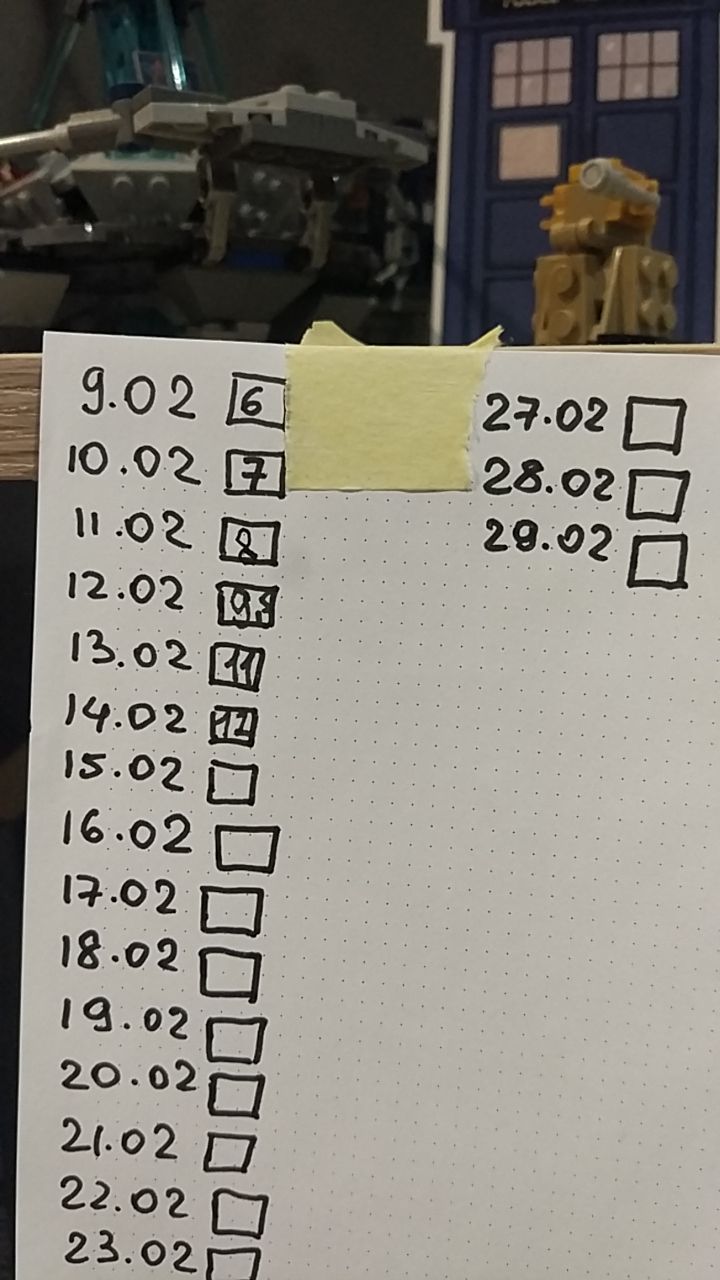 9.02 6
10.02 7
11.02 8
12.02
13.02 11
14.02 12
15.02
16.02
17.02
18.02
19.02
20.02
21.02
22.02
23.02
27.02
28.02
29.02